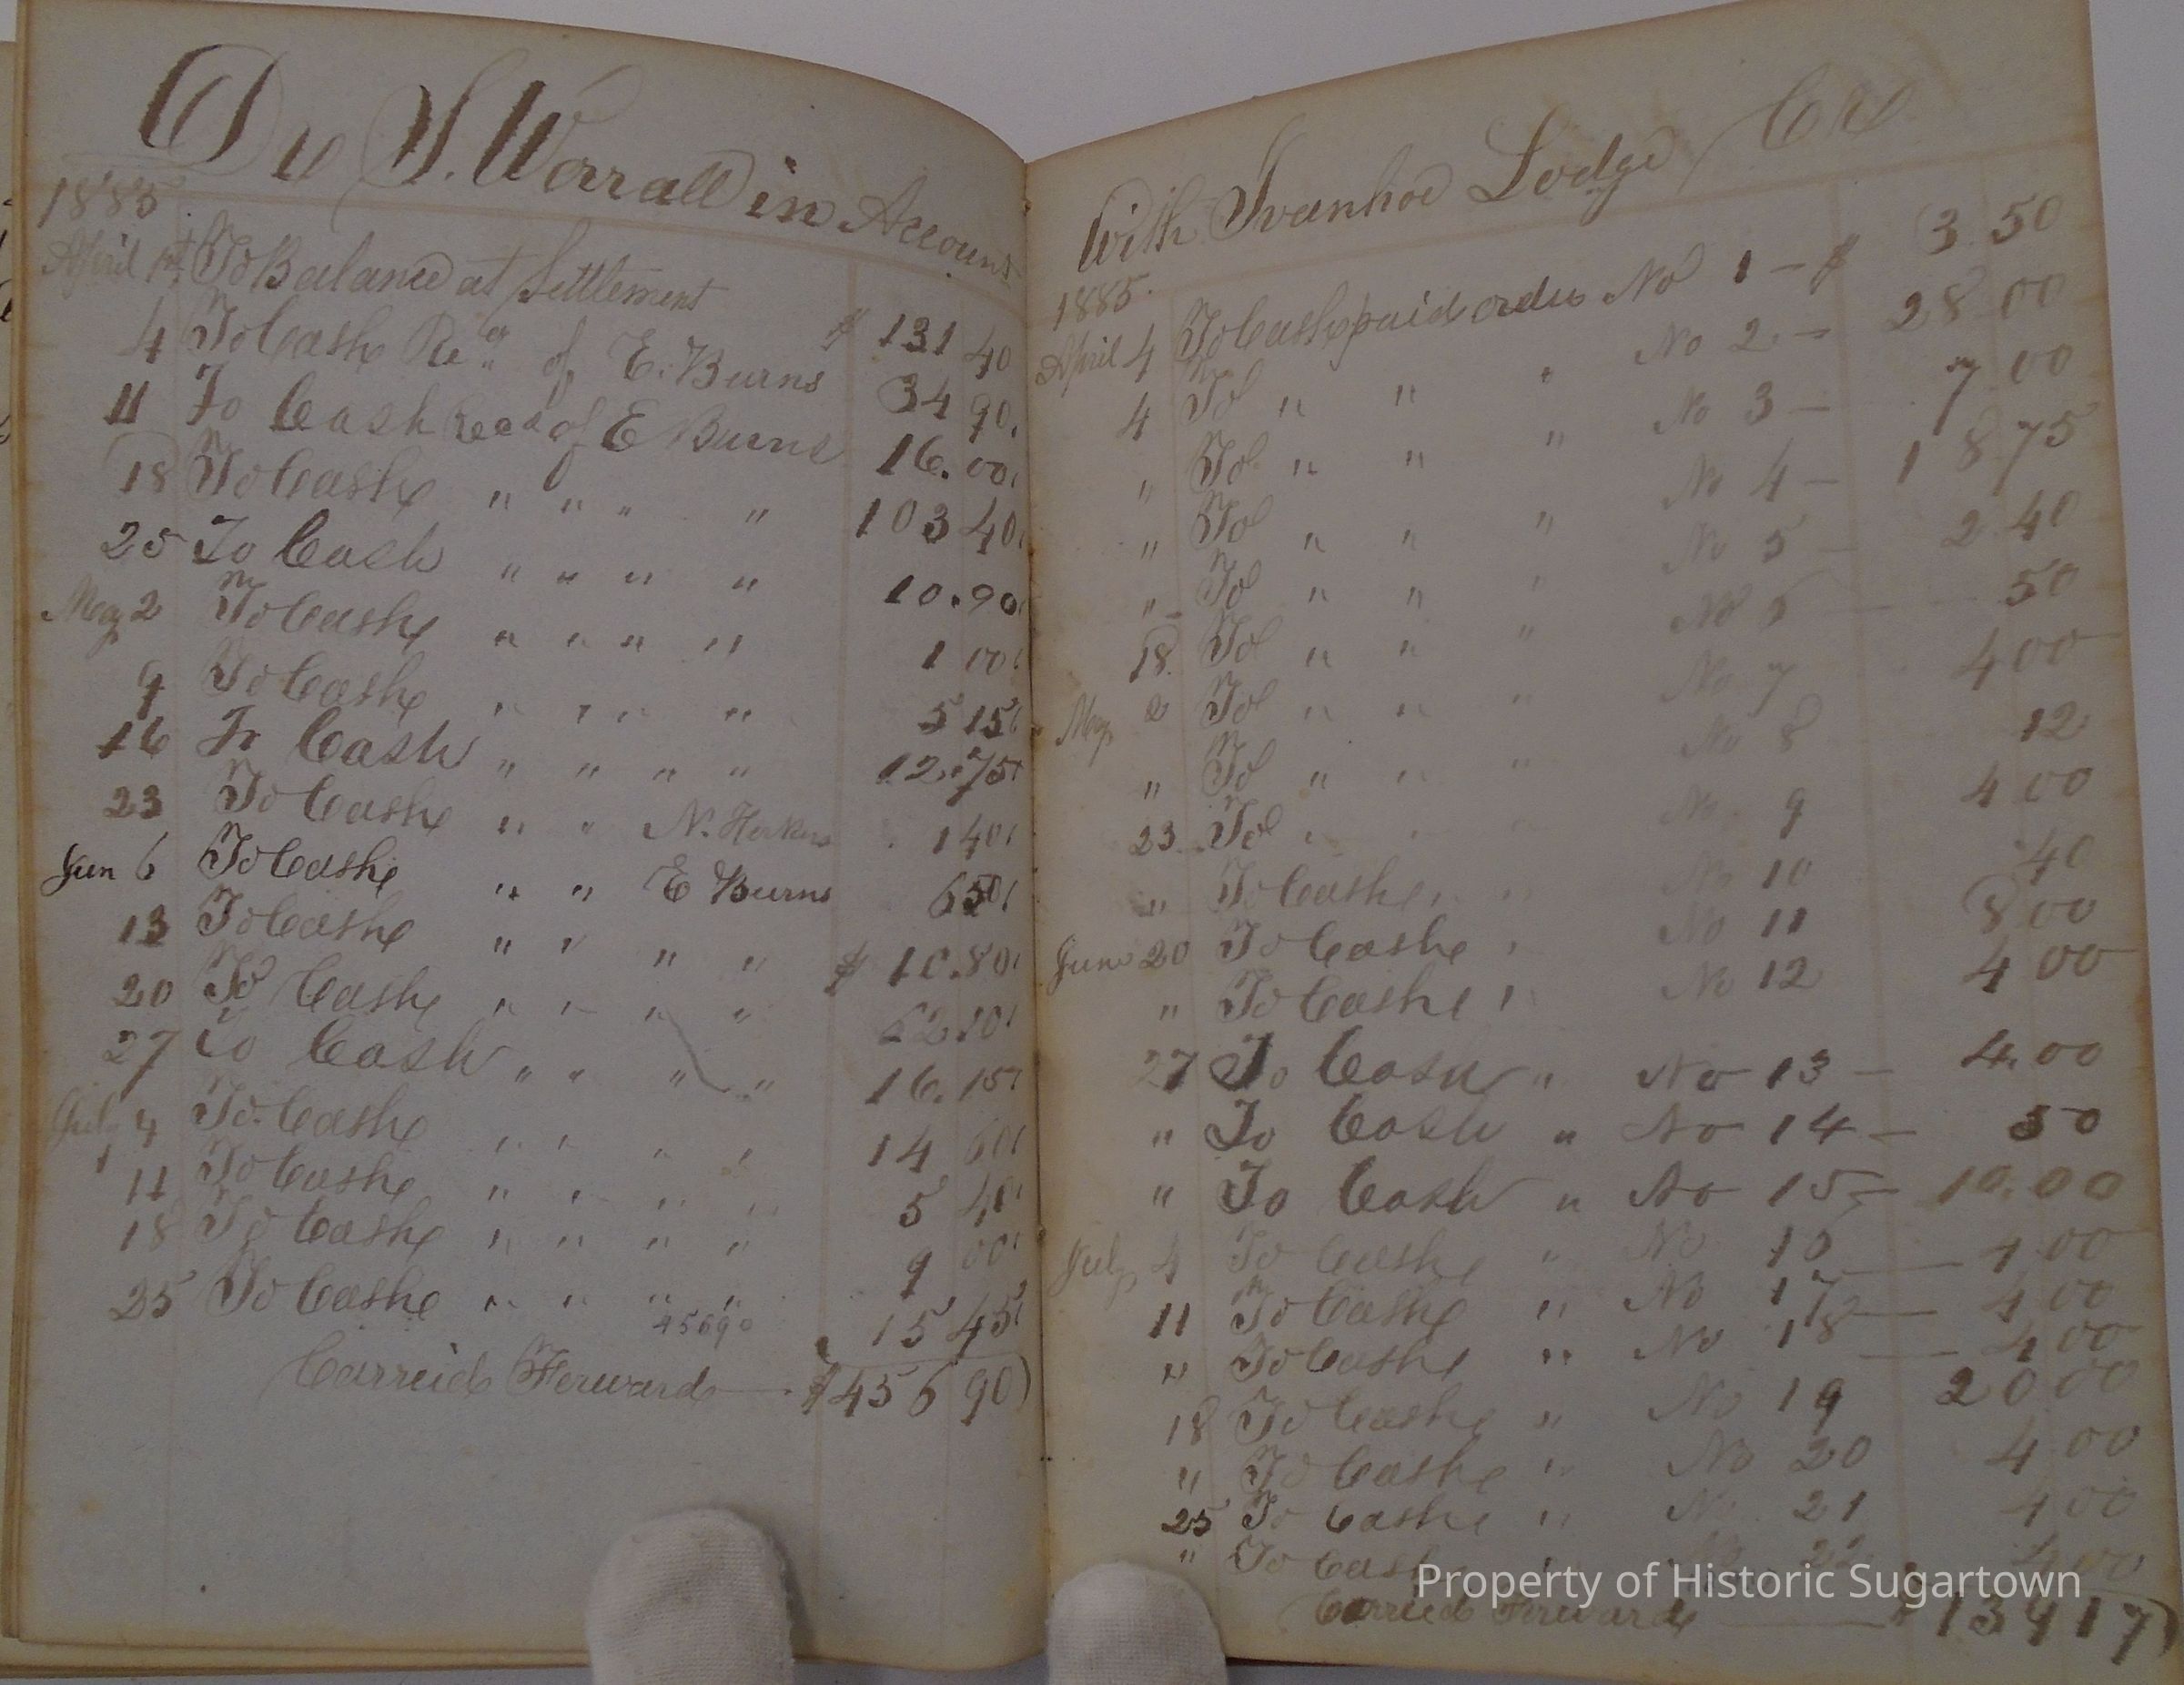 Dr S. Worrall in Account
1885
April 1st To Balance at Settlement $ 131 40
4 To Cash Re" of E. Burns 34 90
11 To Cash Recd of E Burns 16.00
18 To Cash " " " " 103 40
25 To Cash " " " " 10.90
May 2 To Cash " " " " 1 00
9 To Cash " " " " 5 15
16 To Cash " " " " 12.75
23 To Cash " " N. 1 40
Jun 6 To Cash " " E Burns 6 50
13 To Cash " " " " $ 10.80
20 To Cash " " " "
27 To Cash " " " " 16.15
July 4 To Cash " " " " 14 60
11 To Cash " " " " 5 40
18 To Cash " " " " 9 00
25 To Cash " " " " 15 45
45690
Carreid Forward $ 456 90
With Ivanhoe Lodge Cr
1885.
April 4 To Cash paid order No 1 - $ 3 50
4 To " " " No 2 - 28 00
" To " " " No 3 - 7 00
" To " " " No 4 - 18 75
" To " " " No 5 - 2 40
18 To " " " No 6 50
May 2 To " " " No 7 4 00
" To " " " No 8 12
23 To No 9 4 00
" To Cash No 10 40
June 20 To Cash " No 11 8 00
" To Cash " No 12 4 00
27 To Cash " No 13 - 4.00
" To Cash " No 14 - 50
" To Cash " No 15 - 10.00
July 4 To Cash " No 16 00
11 To Cash " No 17 4 00
" To Cash " No 18 4 00
18 To Cash " No 19 20 00
" To Cash " No 20 4 00
25 To Cash " No 21 4 00
" To Cash " No 22 4 00
Carried Forward $ 139 17
Property of Historic Sugartown